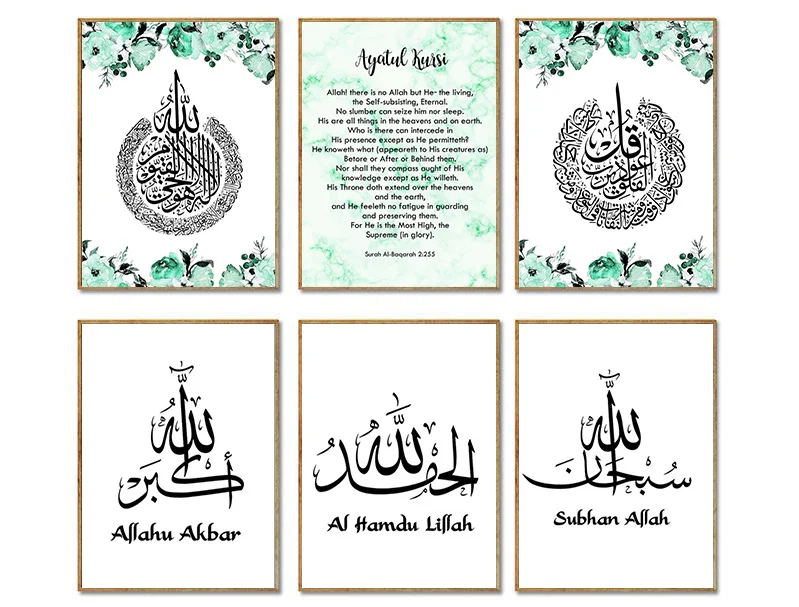 الله لا إله إلا هو الحي القيوم
Ayatul Kursi
Allah! there is no Allah but He- the living,
the Self-subsisting, Eternal.
No slumber can seize him nor sleep.
His are all things in the heavens and on earth.
Who is there can intercede in
His presence except as He permitteth?
He knoweth what (appeareth to His creatures as)
Betore or After or Behind them.
Nor shall they compass aught of His
knowledge except as He willeth.
His Throne doth extend over the heavens
and the earth,
and He feeleth no fatigue in guarding
and preserving them.
For He is the Most High, the
Supreme (in glory).
Surah Al-Baqarah 2:255
قل أعوذ برب الفلق
الله أكبر
Allahu Akbar
الحمد لله
Al Hamdu Lillah
سبحان الله
Subhan Allah